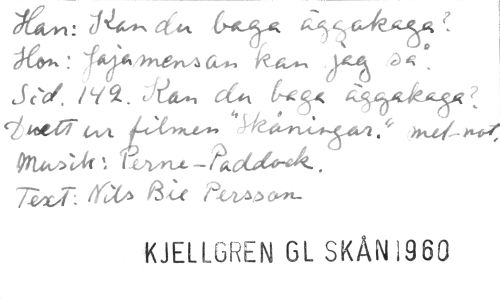 Han: Kan du baga äggakaga?
Hon: Jajamensan kan jag så.
Sid. 142. Kan du baga äggakaga?
Duett ur filmen "Skåningar." mel-not.
Musik: Perne-Paddock.
Text: Nils Bie Persson
KJELLGREN GL SKÅN1960